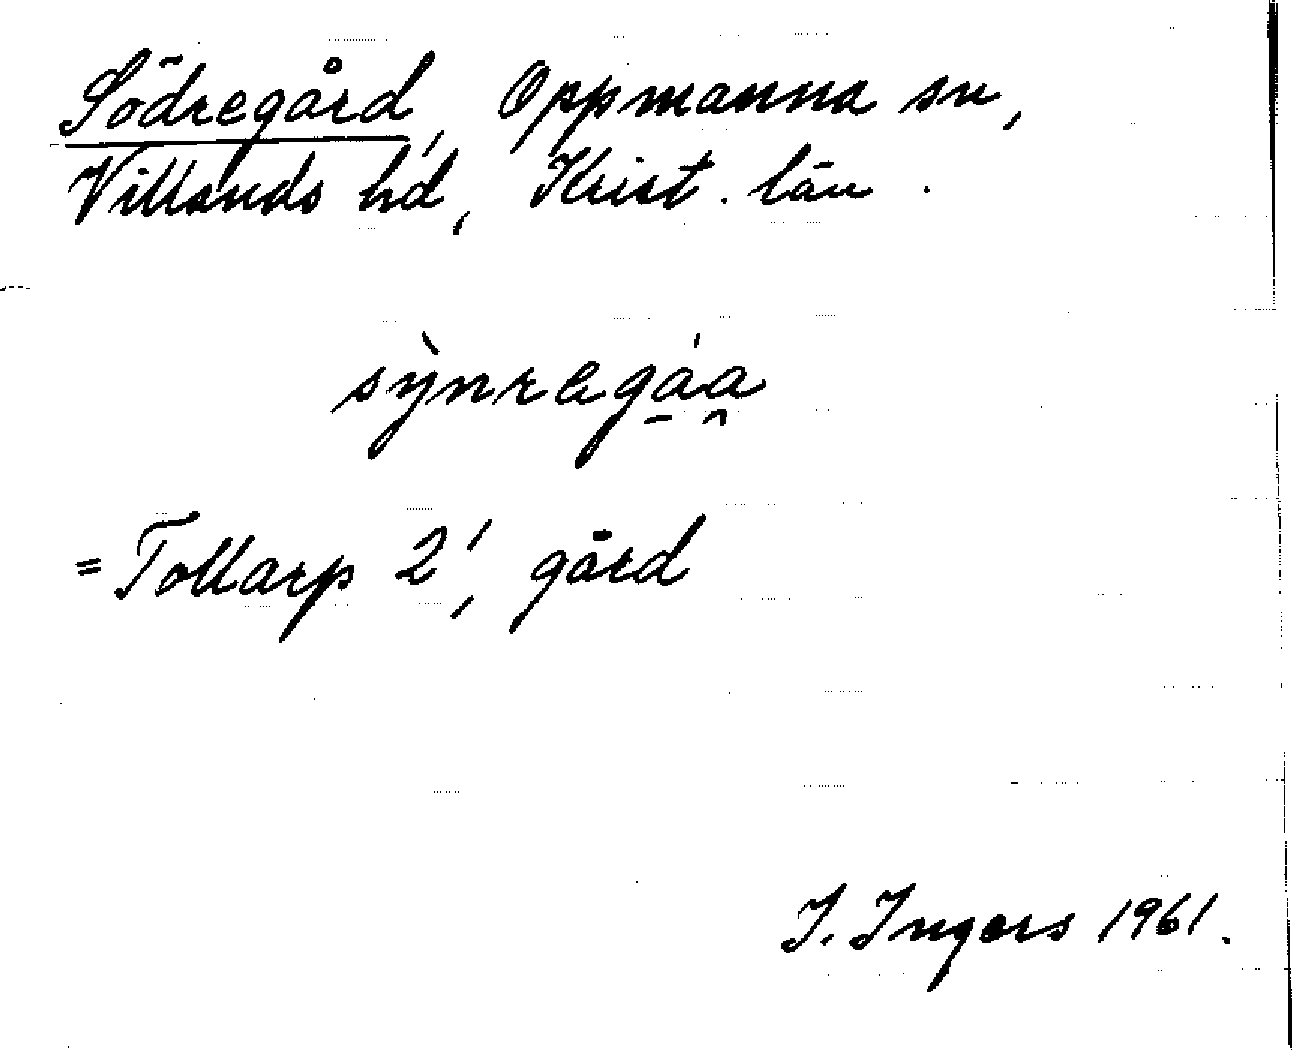 Södregård, Oppmanna sn,
Villands hd, Krist. län.
sỳnregá̠a̯
= Tollarp 2', gård
I. Ingers 1961.